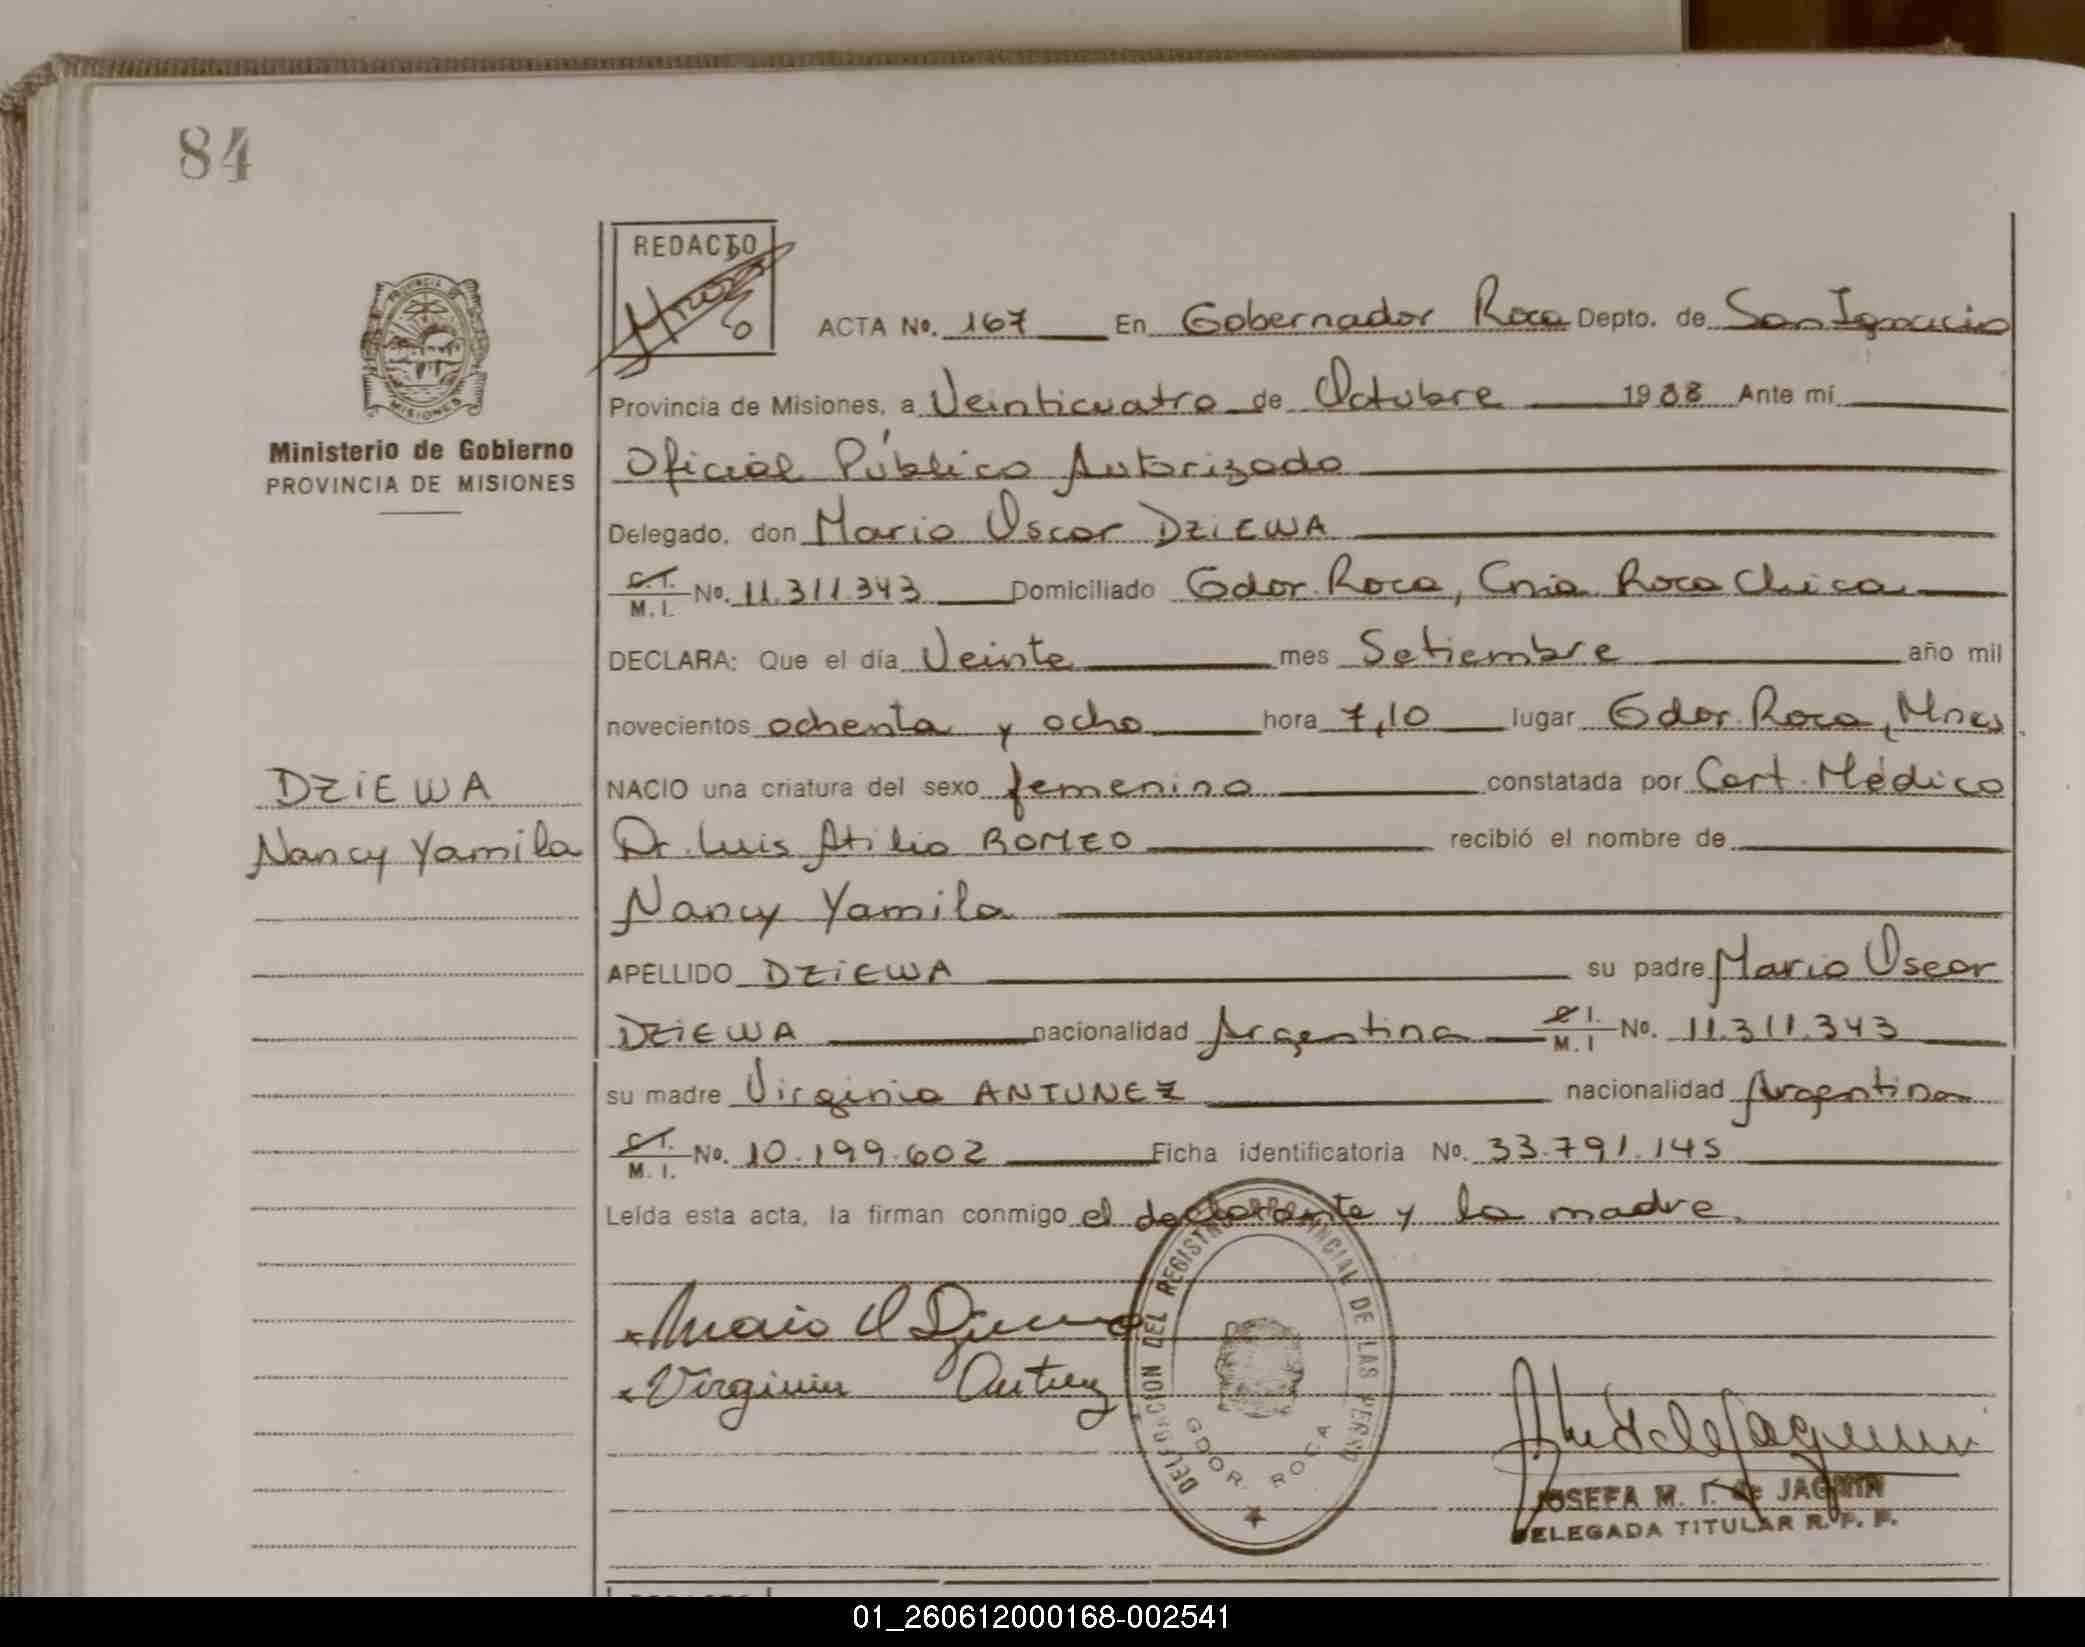 84
REDACTO
PROVINCIA DE
MISIONES
Ministerio de Gobierno
PROVINCIA DE MISIONES
ACTA No. 167 En Gobernador Roca Depto. de San Ignacio
Provincia de Misiones, a Veinticuatro de Octubre 1988 Ante mí
Oficial Público Autorizado
Delegado, don Mario Oscar DZiEWA
C.I. M.I. No. 11.311.343 Domiciliado Gdor. Roca, Cnia Roca Chica
DECLARA: Que el día Veinte mes Setiembre año mil
novecientos ochenta y ocho hora 7,10 lugar Gdor. Roca, Mnes
DZiEWA
NACIO una criatura del sexo femenino constatada por Cert. Médico
Nancy Yamila
Dr. Luis Atilio ROMEO recibió el nombre de
Nancy Yamila
APELLIDO DZiEWA su padre Mario Oscar
DZiEWA nacionalidad Argentina C.I. M.I No. 11.311.343
su madre Virginia ANTUNEZ nacionalidad Argentina
C.I. M.I. No. 10.199.602 Ficha identificatoria No. 33.791.145
Leída esta acta, la firman conmigo el declarante y la madre.
Mario O Dziewa
Virginia Antunez
DELEGACION DEL REGISTRO PROVINCIAL DE LAS PERSO
GDOR. ROCA
JOSEFA M. T. de JAQUIN
DELEGADA TITULAR R. P. P.
01_260612000168-002541